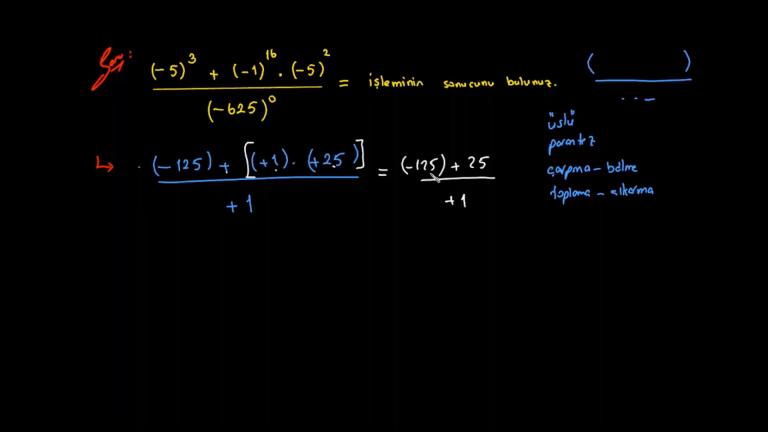 Soru:
(-5)³ + (-1)¹⁶ . (-5)²
(-625)⁰
= işleminin sonucunu bulunuz.
( )
...
"üslü"
parantez
çarpma - bölme
toplama - çıkarma
(-125) + [(+1) . (+25)]
+1
= (-125) + 25
+1